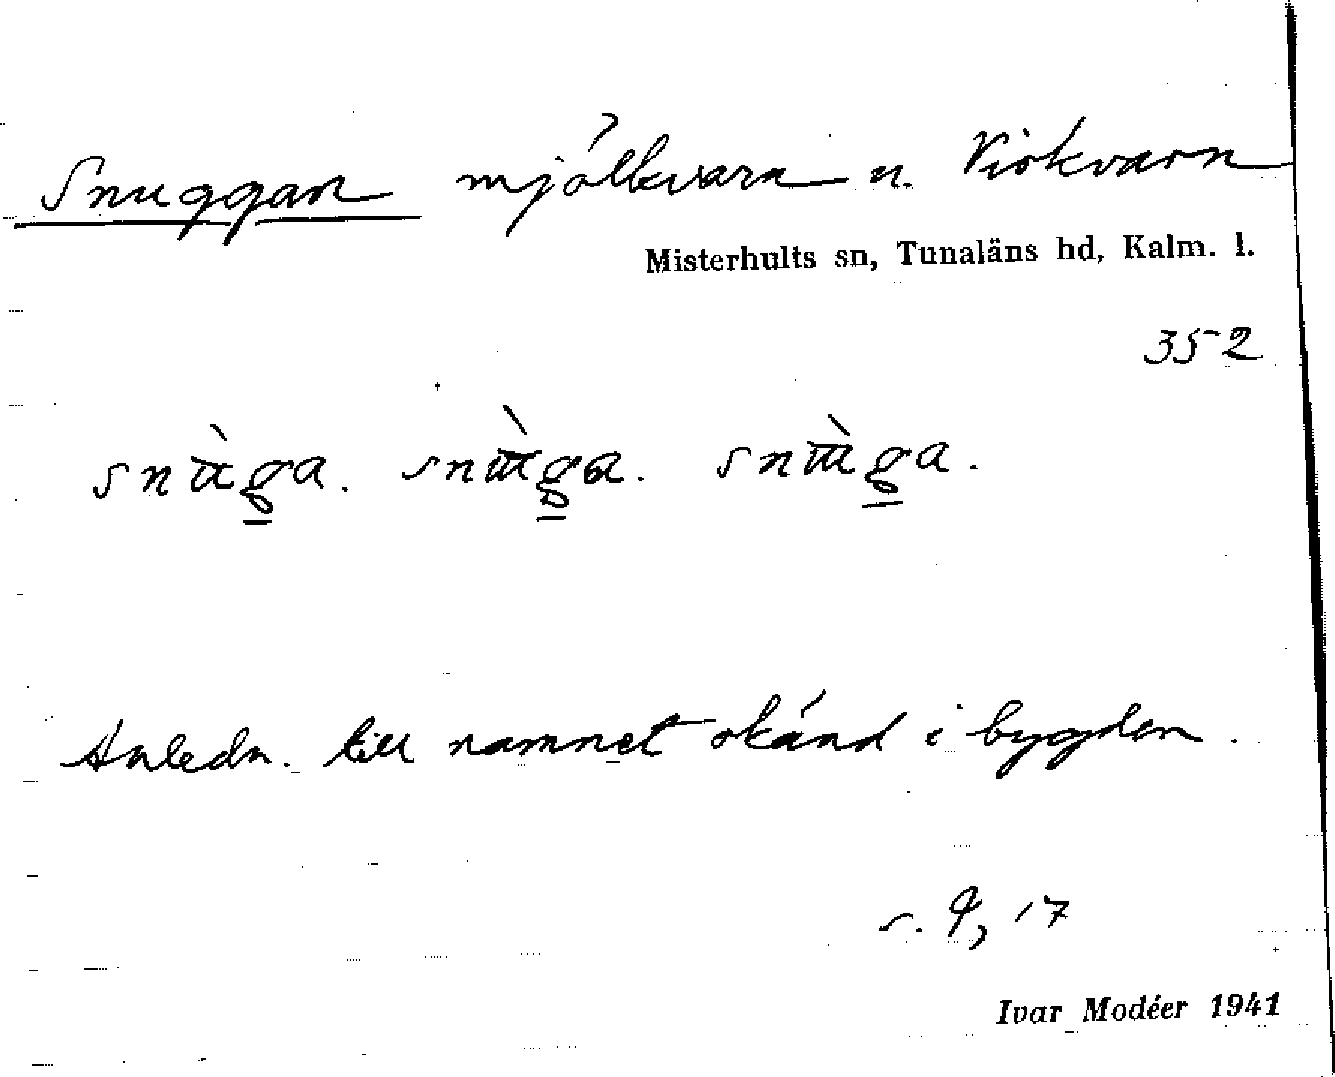 Snuggan mjölkvarn u. Virkvarn
Misterhults sn, Tunaläns hd, Kalm. l.
352
Anledn. till namnet okänd i bygden.
s. 9, 17
Ivar Modéer 1941